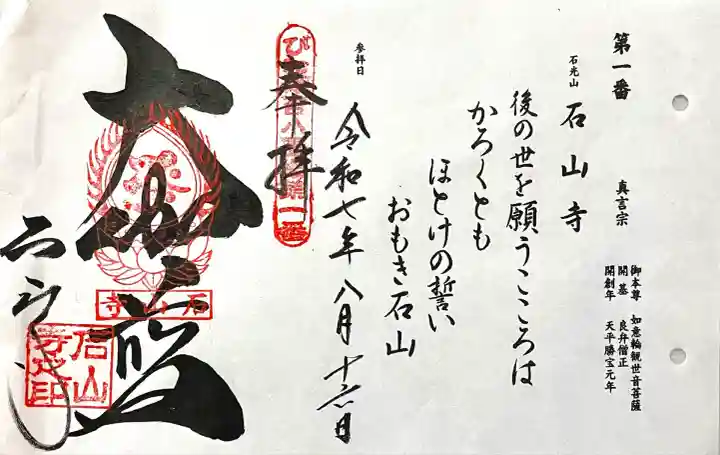 第一番
石光山 石山寺 真言宗
御本尊 如意輪観世音菩薩
開基 良弁僧正
開創年 天平勝宝元年
後の世を願うこころは
かろくとも
ほとけの誓い
おもき石山
参拝日
令和七年八月十六日
奉拝
第一番
大伽藍
石山寺
石山寺之印